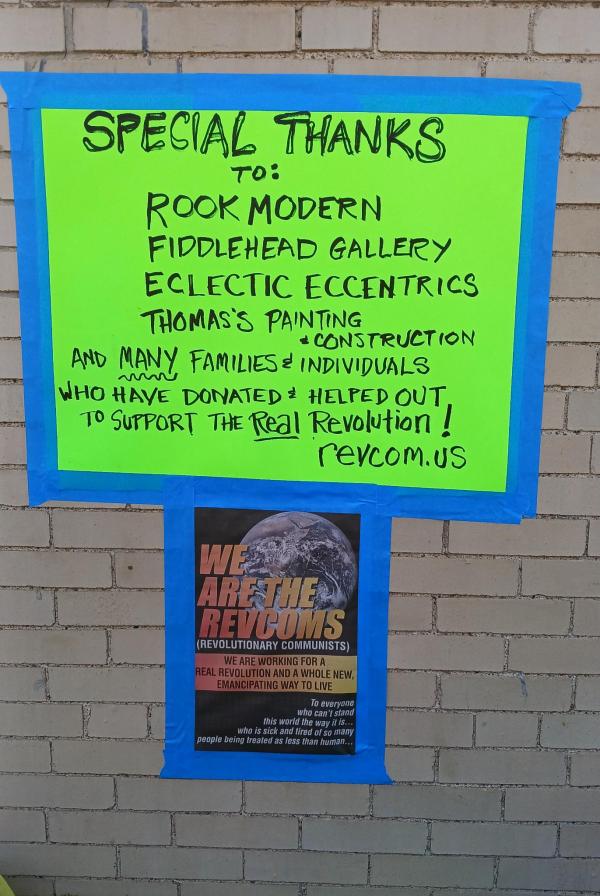 SPECIAL THANKS
TO:
ROOK MODERN
FIDDLEHEAD GALLERY
ECLECTIC ECCENTRICS
THOMAS'S PAINTING
& CONSTRUCTION
AND MANY FAMILIES & INDIVIDUALS
WHO HAVE DONATED & HELPED OUT
TO SUPPORT THE Real Revolution!
revcom.us
WE
ARE THE
REVCOMS
(REVOLUTIONARY COMMUNISTS)
WE ARE WORKING FOR A
REAL REVOLUTION AND A WHOLE NEW,
EMANCIPATING WAY TO LIVE
To everyone
who can't stand
this world the way it is...
who is sick and tired of so many
people being treated as less than human...